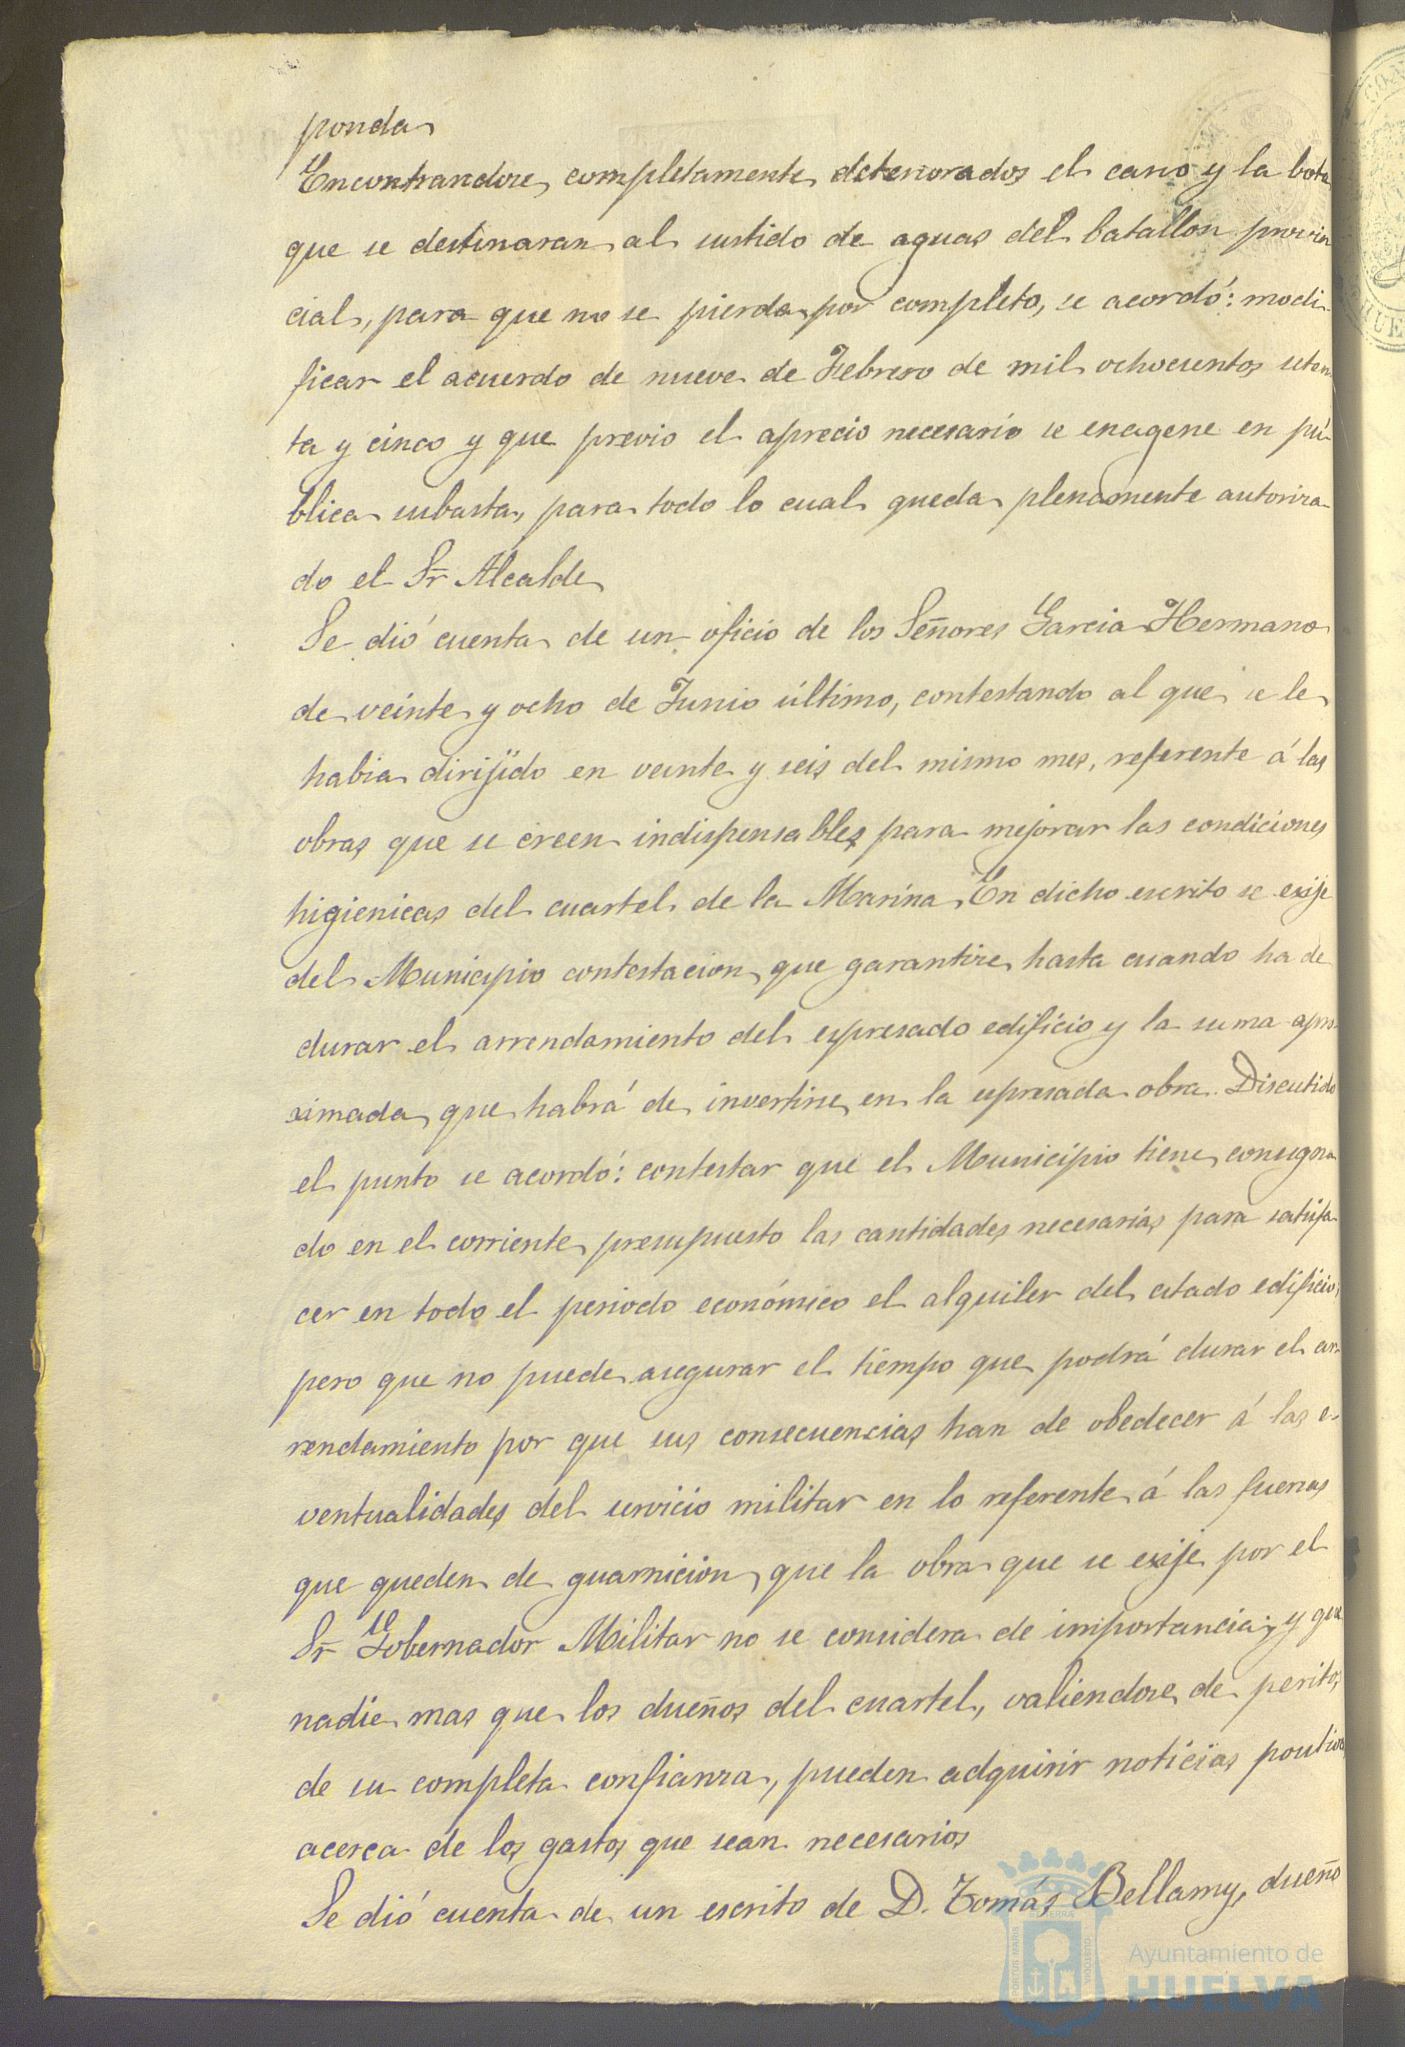 ponda
Encontrandose completamente deteriorados el carro y la bota
que se destinaran al surtido de aguas del batallon provin
cial, para que no se pierda por completo, se acordó: modi-
ficar el acuerdo de nueve de Febrero de mil ochocientos seten
ta y cinco y que previo el aprecio necesario se enagene en pú-
blica subasta, para todo lo cual queda plenamente autoriza-
do el Sr Alcalde
Se dió cuenta de un oficio de los Señores Garcia Hermano
de veinte y ocho de Junio último, contestando al que se le
habia dirijido en veinte y seis del mismo mes, referente á las
obras que se creen indispensables para mejorar las condiciones
higienicas del cuartel de la Marina. En dicho escrito se exije
del Municipio contestacion que garantize hasta cuando ha de
durar el arrendamiento del espresado edificio y la suma apro-
ximada que habrá de invertirse en la espresada obra. Discutido
el punto se acordó: contestar que el Municipio tiene consigna
do en el corriente presupuesto las cantidades necesarias para satisfa
cer en todo el periodo económico el alquiler del citado edificio,
pero que no puede asegurar el tiempo que podrá durar el ar-
rendamiento por que sus consecuencias han de obedecer á las e-
ventualidades del servicio militar en lo referente á las fuerzas
que queden de guarnicion, que la obra que se exije por el
Sr Gobernador Militar no se considera de importancia, y que
nadie mas que los dueños del cuartel, valiendose de peritos
de su completa confianza, pueden adquirir noticias positivas
acerca de los gastos que sean necesarios
Se dió cuenta de un escrito de D. Tomás Bellamy, dueño
Ayuntamiento de
HUELVA